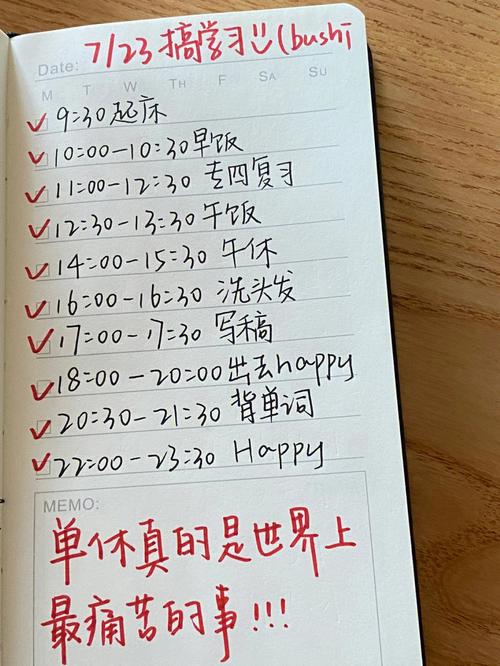 Date: 7/23 搞学习 (bushi
M T W TH F SA SU
9:30 起床
10:00-10:30 早饭
11:00-12:30 专四复习
12:30-13:30 午饭
14:00-15:30 午休
16:00-16:30 洗头发
17:00-17:30 写稿
18:00-20:00 出去happy
20:30-21:30 背单词
22:00-23:30 Happy
MEMO:
单休真的是世界上
最痛苦的事!!!